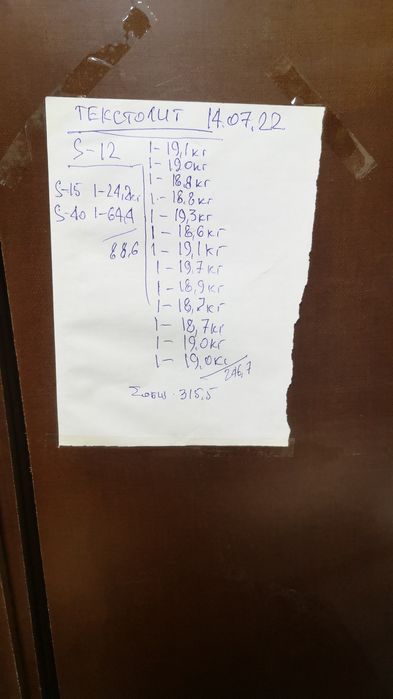 ТЕКСТОЛИТ 14.07.22
S-12
S-15 1-24,2кг
S-40 1-64,4
88,6
1-19,1кг
1-19,0кг
1-18,8кг
1-18,8кг
1-19,3кг
1-18,6кг
1-19,1кг
1-19,7кг
1-18,9кг
1-18,7кг
1-18,7кг
1-19,0кг
1-19,0кг
246,7
Σобщ. 315,5